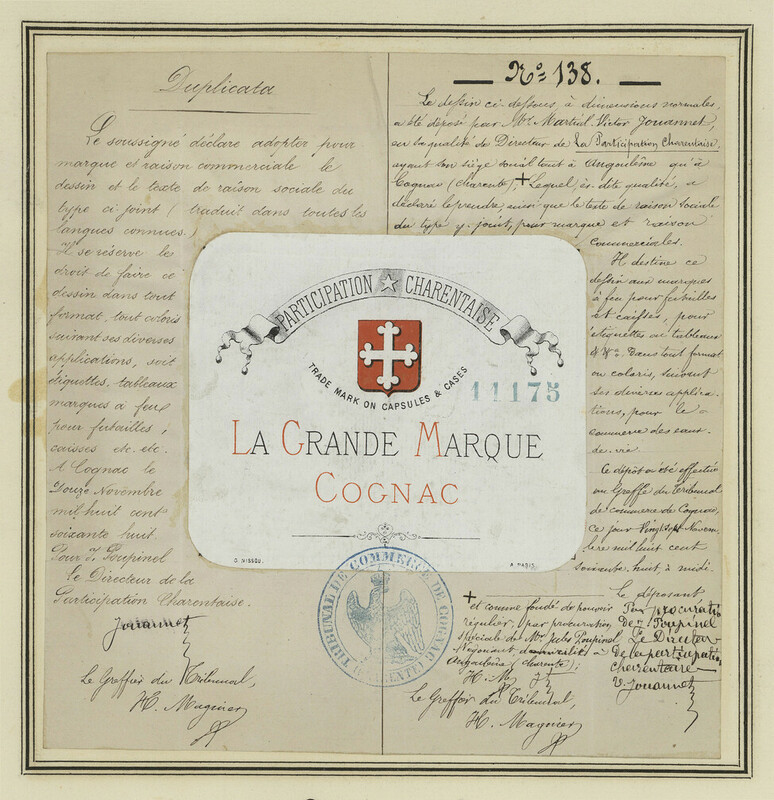 Duplicata
Le soussigné déclare adopter pour
marque et raison commerciale le
dessin et le texte de raison sociale du
type ci joint (traduit dans toutes les
langues connues.)
Il se réserve le
droit de faire ce
dessin dans tout
format, tout coloris
suivant ses diverses
applications, soit
étiquettes, tableaux
marques à feu
pour futailles,
caisses etc. etc.
A Cognac le
Douze Novembre
mil huit cent
soixante huit.
Pour J. Poupinel
le Directeur de la
Participation Charentaise.
Jouannet
Le Greffier du Tribunal,
H. Magnier
No 138.
Le dessin ci dessous, à dimensions normales,
a été déposé par Mr. Martial Victor Jouannet,
en sa qualité de Directeur de La Participation Charentaise,
ayant son siège social tout à Angoulême qu'à
Cognac (charente), + Lequel, ès dite qualité, a
déclaré le prendre ainsi que le texte de raison sociale
du type y joint, pour marque et raison
commerciales.
Il destine ce
dessin aux marques
à feu pour futailles
et caisses, pour
étiquettes ou tableaux
Dans tout format
ou coloris, suivant
ses diverses applica-
tions, pour le
commerce des eaux-
de-vie.
Ce dépôt a été effectué
au Greffe du Tribunal
de commerce de Cognac,
ce jour Vingt Sept Novem-
bre mil huit cent
soixante huit, à midi.
Le déposant
Par procuration
De J. Poupinel
Le Directeur
De la participation
charentaise
V. Jouannet
+ et comme fondé de pouvoir
régulier, par procuration
spéciale de Mr. Jules Poupinel,
Négociant, à
Angoulême (charente);
H. M. J
Le Greffier du Tribunal,
H. Magnier
PARTICIPATION CHARENTAISE
TRADE MARK ON CAPSULES & CASES
11175
LA GRANDE MARQUE
COGNAC
G. NISSOU.
A PARIS.
TRIBUNAL DE COMMERCE DE COGNAC
(CHARENTE)